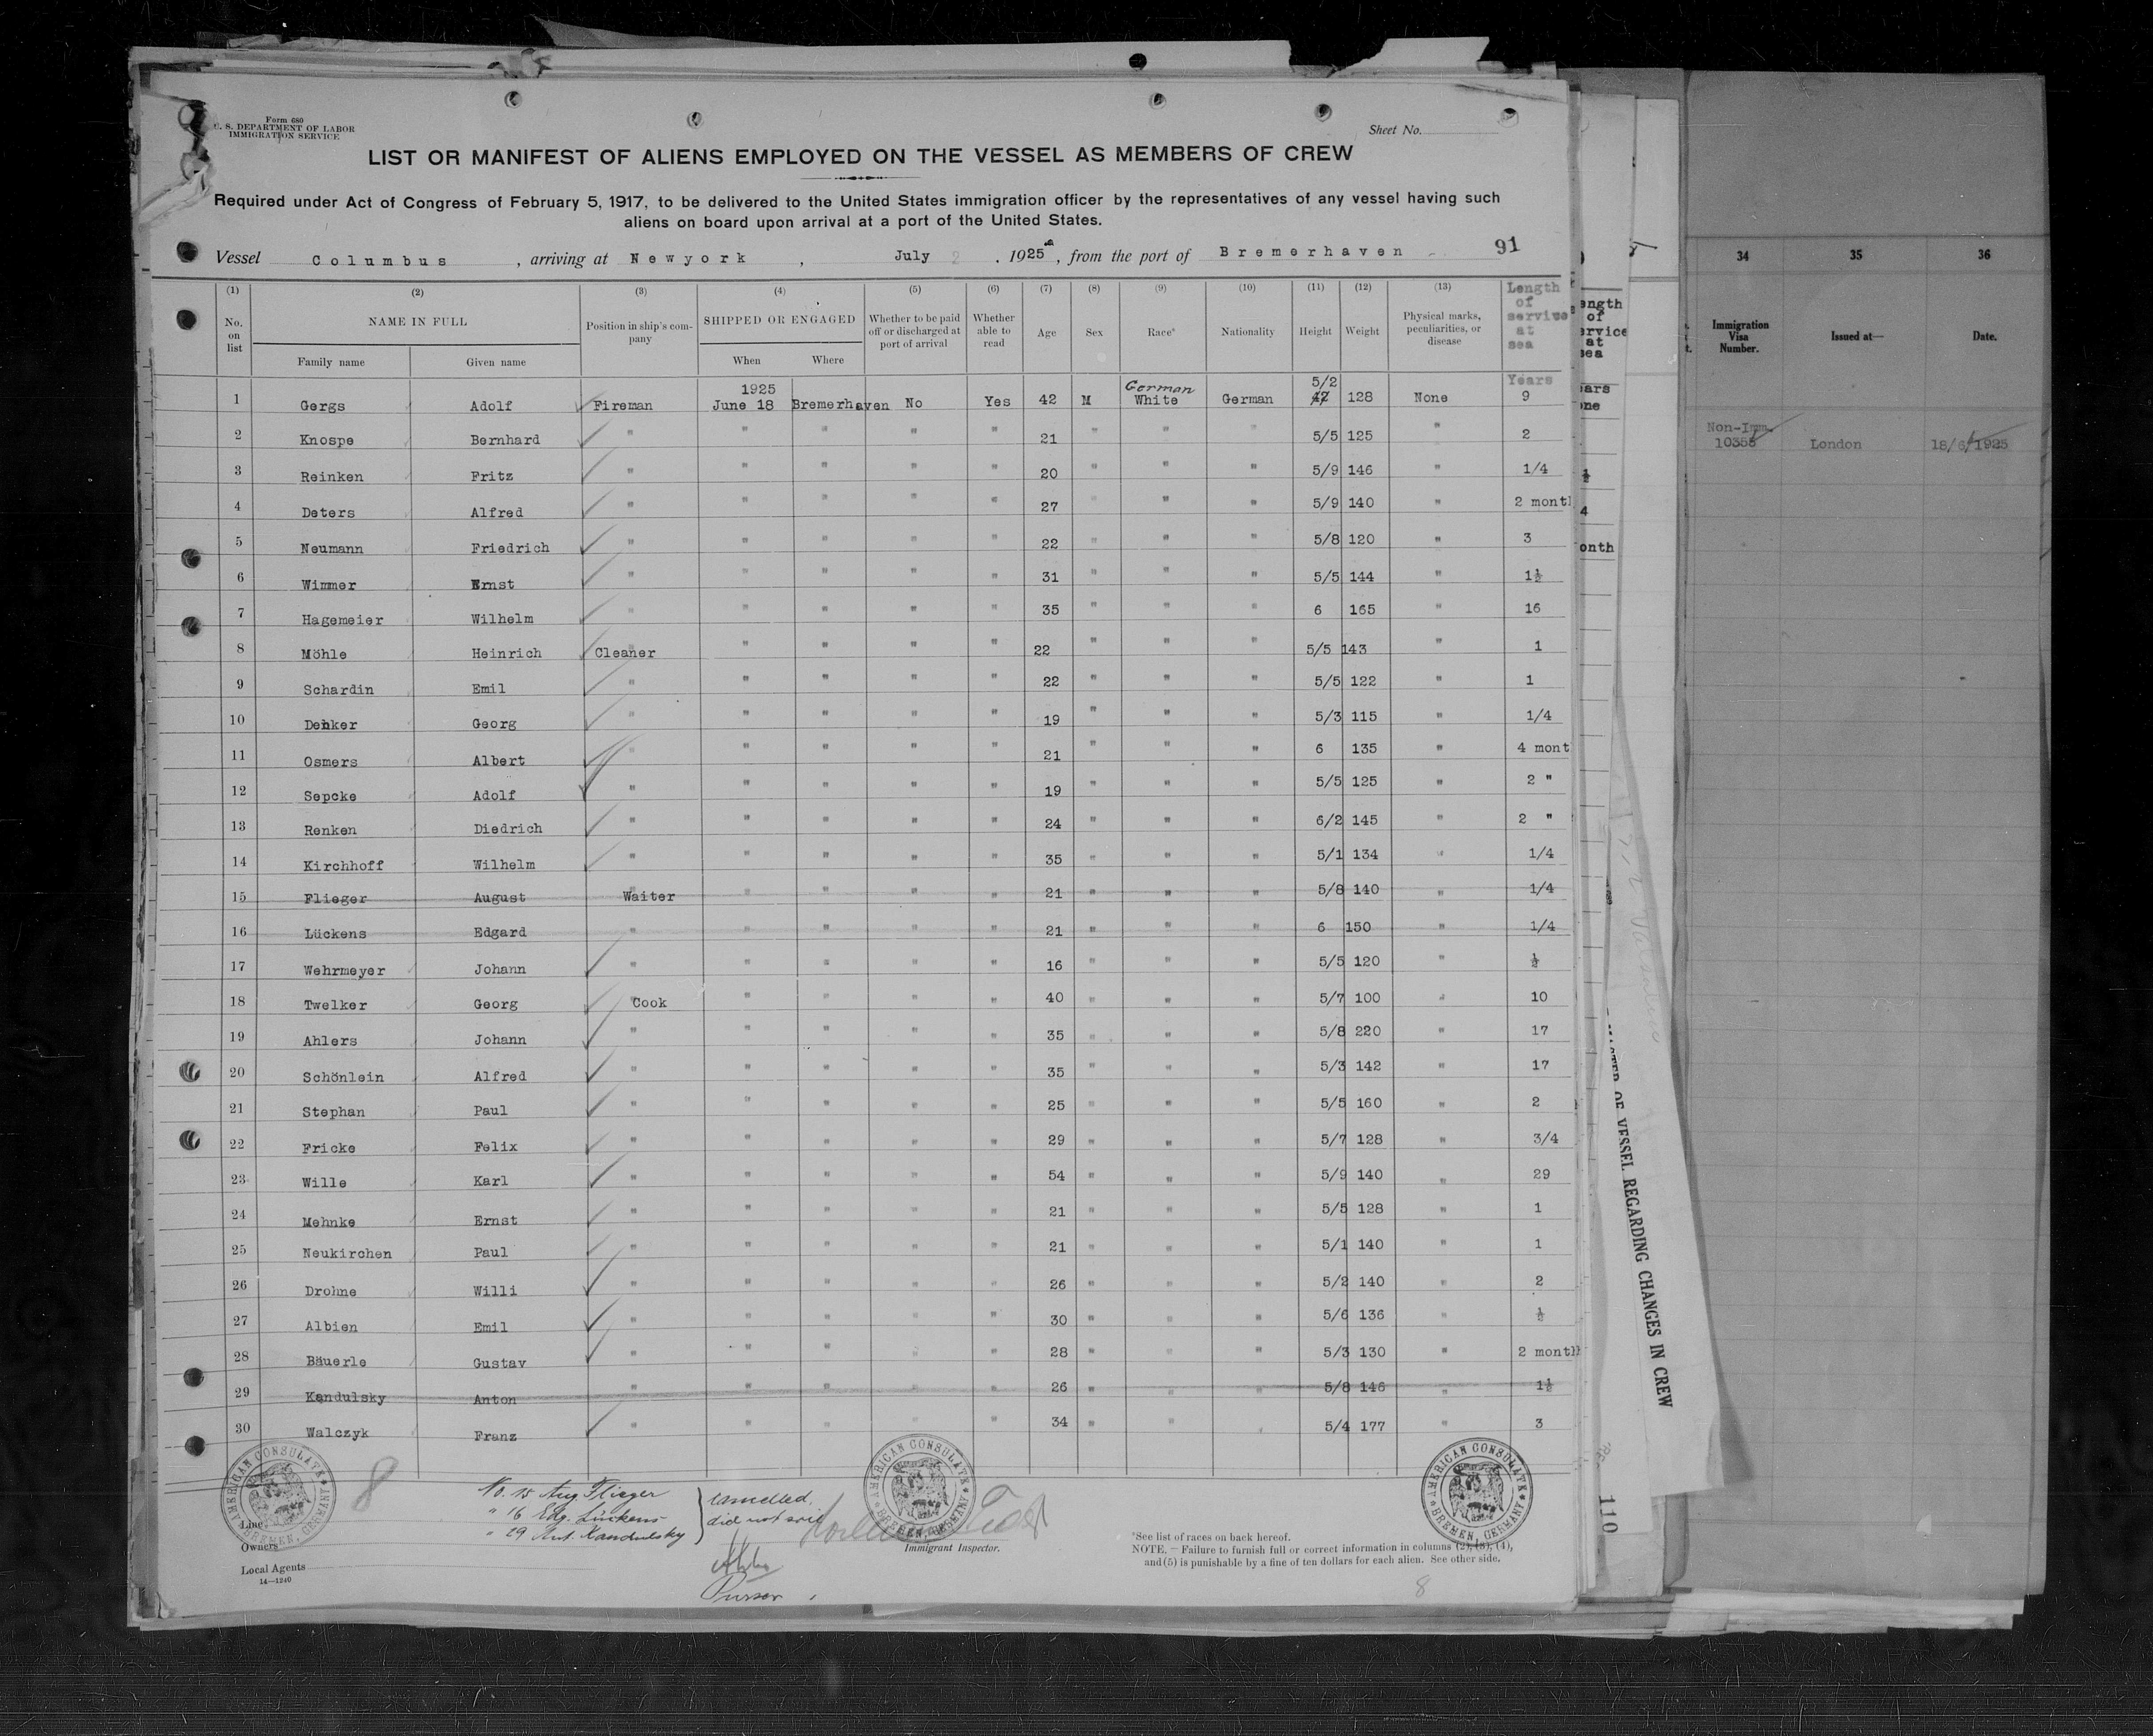 Form 680
U. S. DEPARTMENT OF LABOR
IMMIGRATION SERVICE
Sheet No.
LIST OR MANIFEST OF ALIENS EMPLOYED ON THE VESSEL AS MEMBERS OF CREW
Required under Act of Congress of February 5, 1917, to be delivered to the United States immigration officer by the representatives of any vessel having such
aliens on board upon arrival at a port of the United States.
Vessel Columbus, arriving at Newyork, July 2, 1925, from the port of Bremerhaven 91
(1) (2) (3) (4) (5) (6) (7) (8) (9) (10) (11) (12) (13) Length of service at sea
No. on list NAME IN FULL Position in ship's company SHIPPED OR ENGAGED Whether to be paid off or discharged at port of arrival Whether able to read Age Sex Race* Nationality Height Weight Physical marks, peculiarities, or disease
Family name Given name When Where
1925 German 5/2 Years
1 Gergs Adolf Fireman June 18 Bremerhaven No Yes 42 M White German 128 None 9
2 Knospe Bernhard " " " " " 21 " " " 5/5 125 " 2
3 Reinken Fritz " " " " " 20 " " " 5/9 146 " 1/4
4 Deters Alfred " " " " " 27 " " " 5/9 140 " 2 mont
5 Neumann Friedrich " " " " " 22 " " " 5/8 120 " 3
6 Wimmer Ernst " " " " " 31 " " " 5/5 144 " 1½
7 Hagemeier Wilhelm " " " " " 35 " " " 6 165 " 16
8 Möhle Heinrich Cleaner " " " " 22 " " " 5/5 143 " 1
9 Schardin Emil " " " " " 22 " " " 5/5 122 " 1
10 Denker Georg " " " " " 19 " " " 5/3 115 " 1/4
11 Osmers Albert " " " " " 21 " " " 6 135 " 4 mont
12 Sepcke Adolf " " " " " 19 " " " 5/5 125 " 2 "
13 Renken Diedrich " " " " " 24 " " " 6/2 145 " 2 "
14 Kirchhoff Wilhelm " " " " " 35 " " " 5/1 134 " 1/4
15 Flieger August Waiter " " " " 21 " " " 5/8 140 " 1/4
16 Lückens Edgard " " " " " 21 " " " 6 150 " 1/4
17 Wehrmeyer Johann " " " " " 16 " " " 5/5 120 " ½
18 Twelker Georg Cook " " " " 40 " " " 5/7 100 " 10
19 Ahlers Johann " " " " " 35 " " " 5/8 220 " 17
20 Schönlein Alfred " " " " " 35 " " " 5/3 142 " 17
21 Stephan Paul " " " " " 25 " " " 5/5 160 " 2
22 Fricke Felix " " " " " 29 " " " 5/7 128 " 3/4
23 Wille Karl " " " " " 54 " " " 5/9 140 " 29
24 Mehnke Ernst " " " " " 21 " " " 5/5 128 " 1
25 Neukirchen Paul " " " " " 21 " " " 5/1 140 " 1
26 Drohne Willi " " " " " 26 " " " 5/2 140 " 2
27 Albien Emil " " " " " 30 " " " 5/6 136 " ½
28 Bäuerle Gustav " " " " " 28 " " " 5/3 130 " 2 month
29 Kandulsky Anton " " " " " 26 " " " 5/8 146 " 1½
30 Walczyk Franz " " " " " 34 " " " 5/4 177 " 3
AMERICAN CONSULATE BREMEN, GERMANY
AMERICAN CONSULATE BREMEN, GERMANY
AMERICAN CONSULATE BREMEN, GERMANY
8
No. 15 Aug. Flieger
" 16 Edg. Lückens
" 29 Ant. Kandulsky
cancelled,
did not sail
Purser
Line
Owners
Local Agents
14—1240
Immigrant Inspector.
*See list of races on back hereof.
NOTE.—Failure to furnish full or correct information in columns (2), (3), (4),
and (5) is punishable by a fine of ten dollars for each alien. See other side.
8
ength
of
ervice
at
sea
ars
onth
OF VESSEL REGARDING CHANGES IN CREW
110
34 35 36
Immigration Visa Number. Issued at— Date.
Non-Imm.
10358 London 18/6/1925